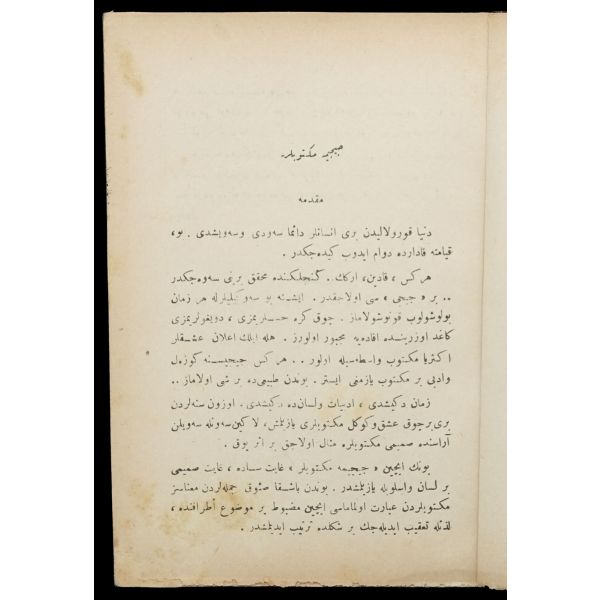 جیجیمه مکتوبلر
مقدمه
دنیا قورولالیدن بری انسانلر دائما سه‌ودی وسه‌ویشدی . بو،
قیامته قادارده دوام ایدوب کیده‌جکدر .
هر کس ، قادین، ارکك . کنجلکنده محقق برینی سه‌وه‌جکدر
.. بر « جیجی » سی اولاجقدر . ایشته بو سه‌وکیلیلرله هر زمان
بولوشولوب قونوشولاماز . چوق کره حسلریمزی ، دویغولریمزی
کاغد اوزرینده افاده‌یه مجبور اولورز . هله ایلك اعلان عشقلر
اکثریا مکتوب واسطه‌سیله اولور .. هر کس جیجیسنه کوزه‌ل
وادبی بر مکتوب یازمنی ایستر . بوندن طبیعی‌ده بر شی اولاماز ..
زمان دکیشدی ، ادبیات ولسان‌ده دکیشدی . اوزون سنه‌لردن
بری برچوق عشق وکوکل مکتوبلری یازیلمش، لاکین سه‌ونله سه‌ویلن
آراسنده صمیمی مکتوبلره مثال اولاجق بر اثر یوق .
بونك ایچین « جیجیمه مکتوبلر » غایت ساده ، غایت صمیمی
بر لسان واسلوبله یازیلمشدر . بوندن باشقا صوٸوق جمله‌لردن معناسز
مکتوبلردن عبارت اولماماسی ایچین مضبوط بر موضوع أطرافنده ،
لذتله تعقیب ایدیله‌جك بر شکلده ترتیب ایدیلمشدر .